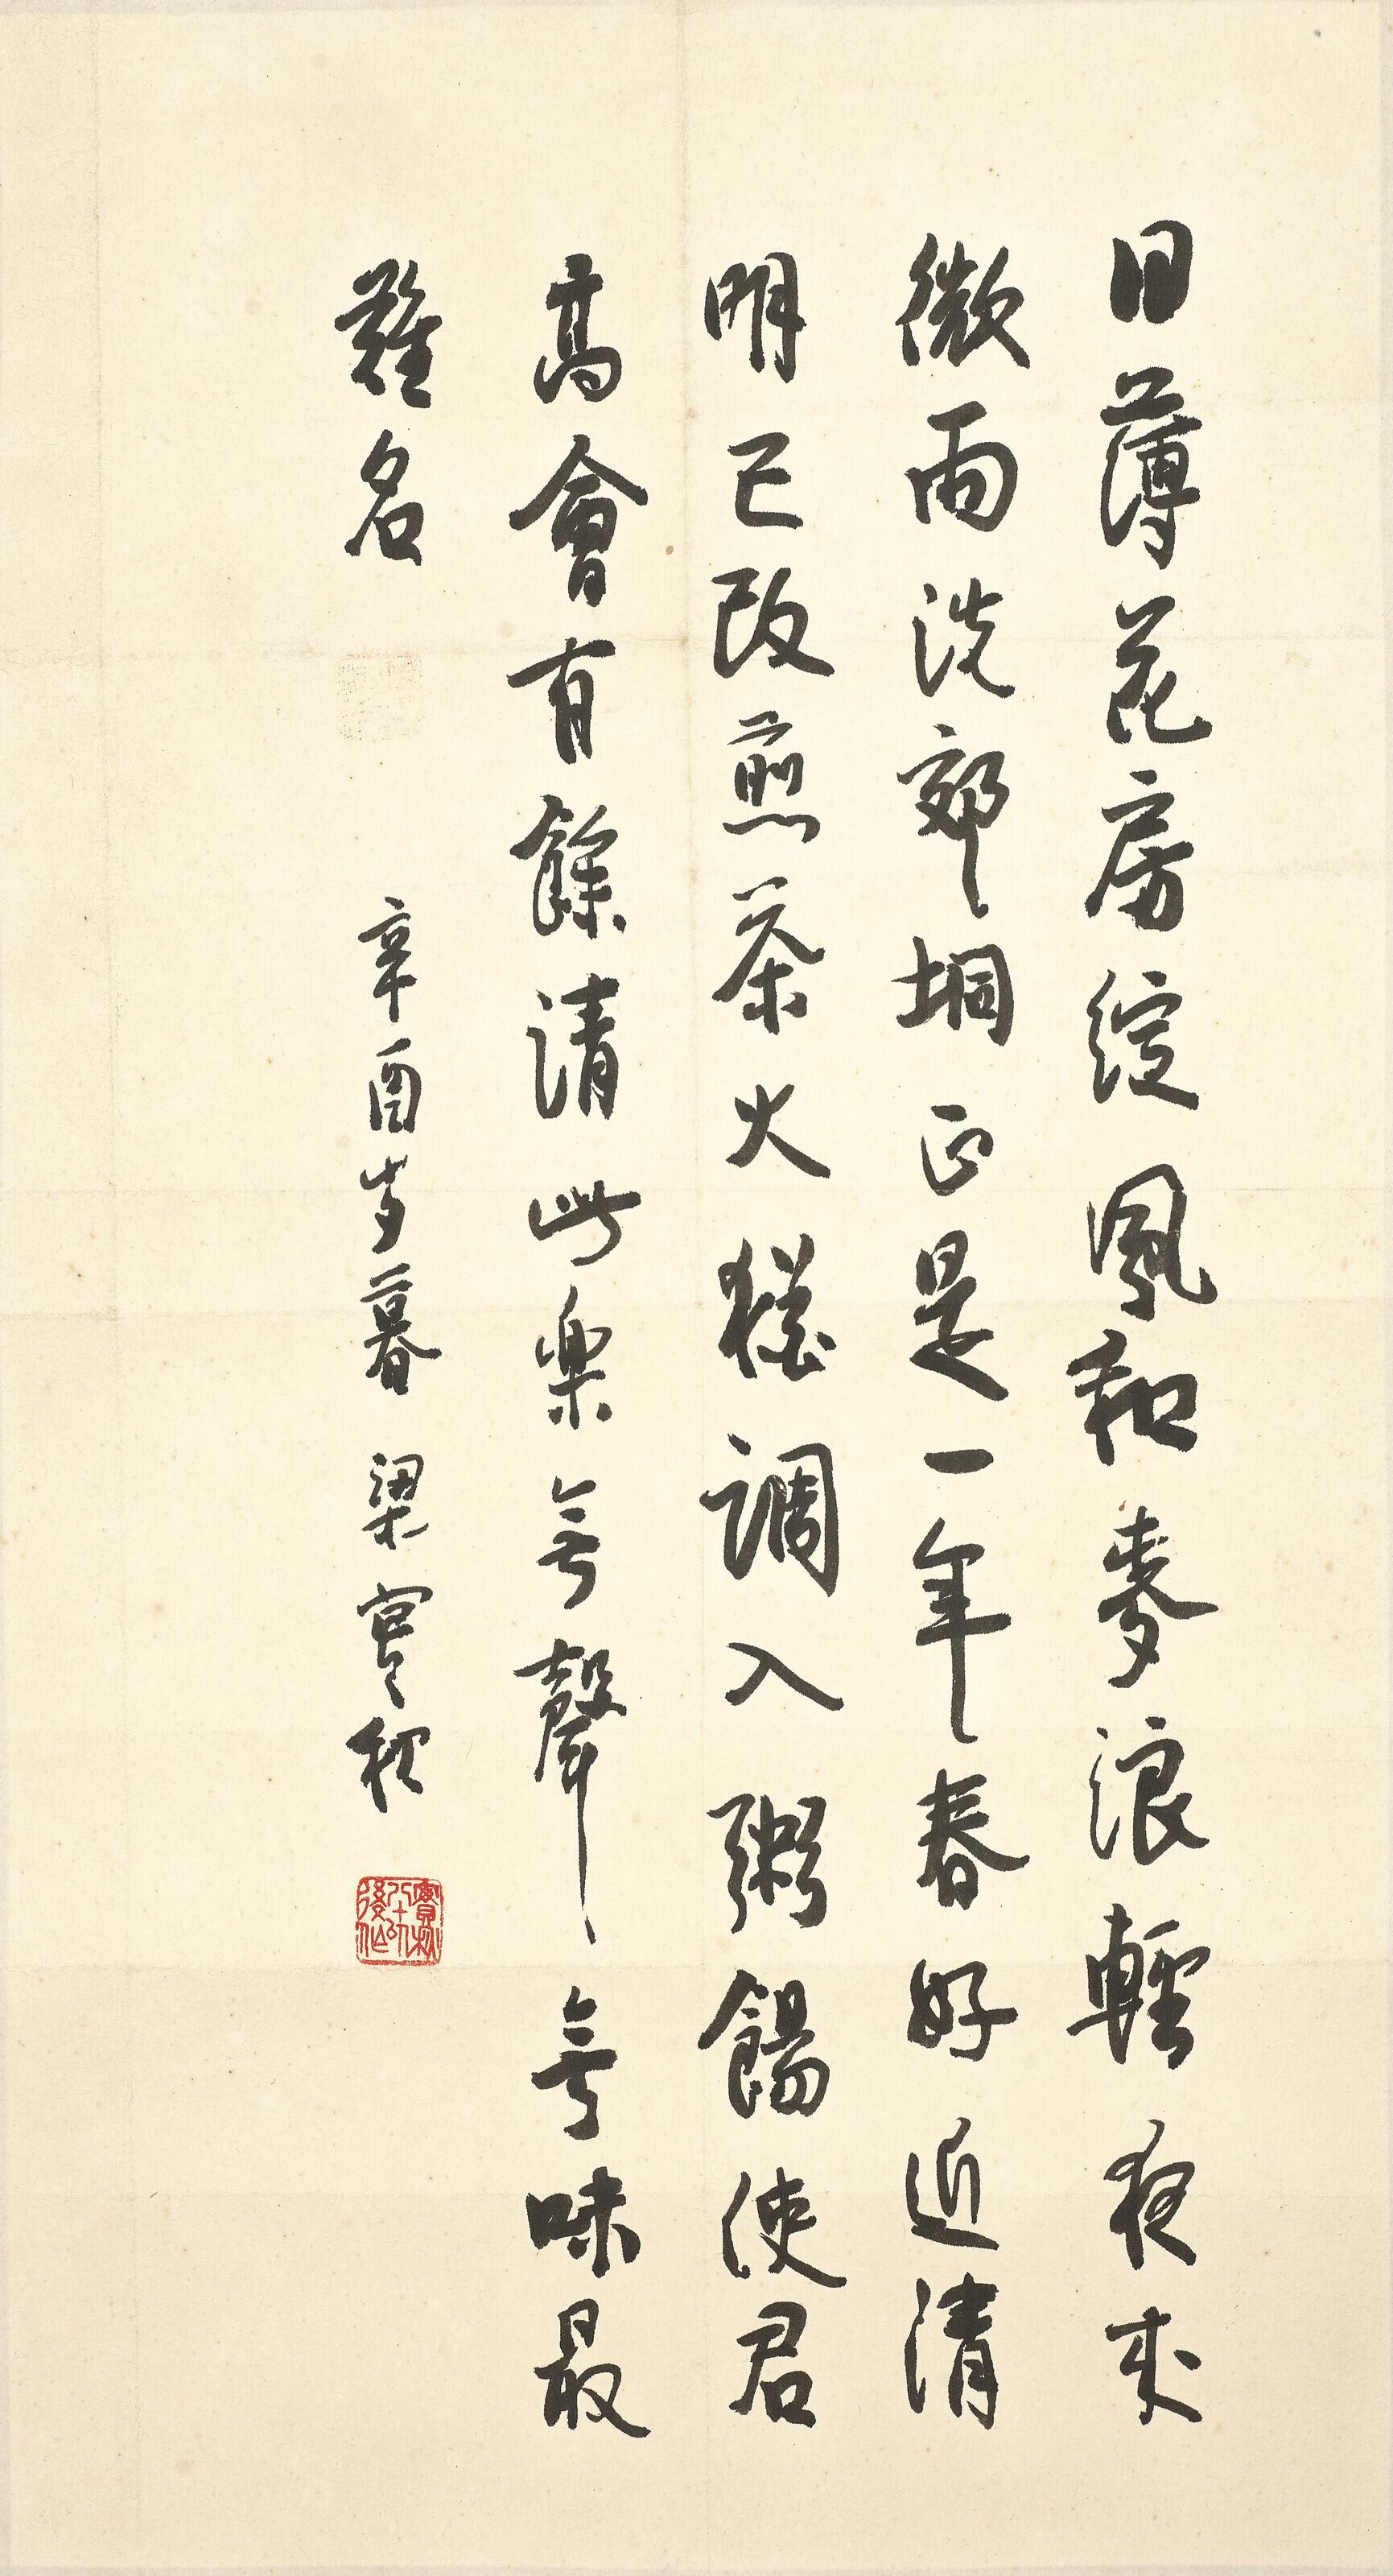 日薄花房綻風和麥浪輕夜来
微雨洗郊坰正是一年春好近清
明已改煎茶火猶調入粥餳使君
高會有餘清此楽無聲無味最
難名
辛酉岁暮 梁實秋
實秋八十以後作